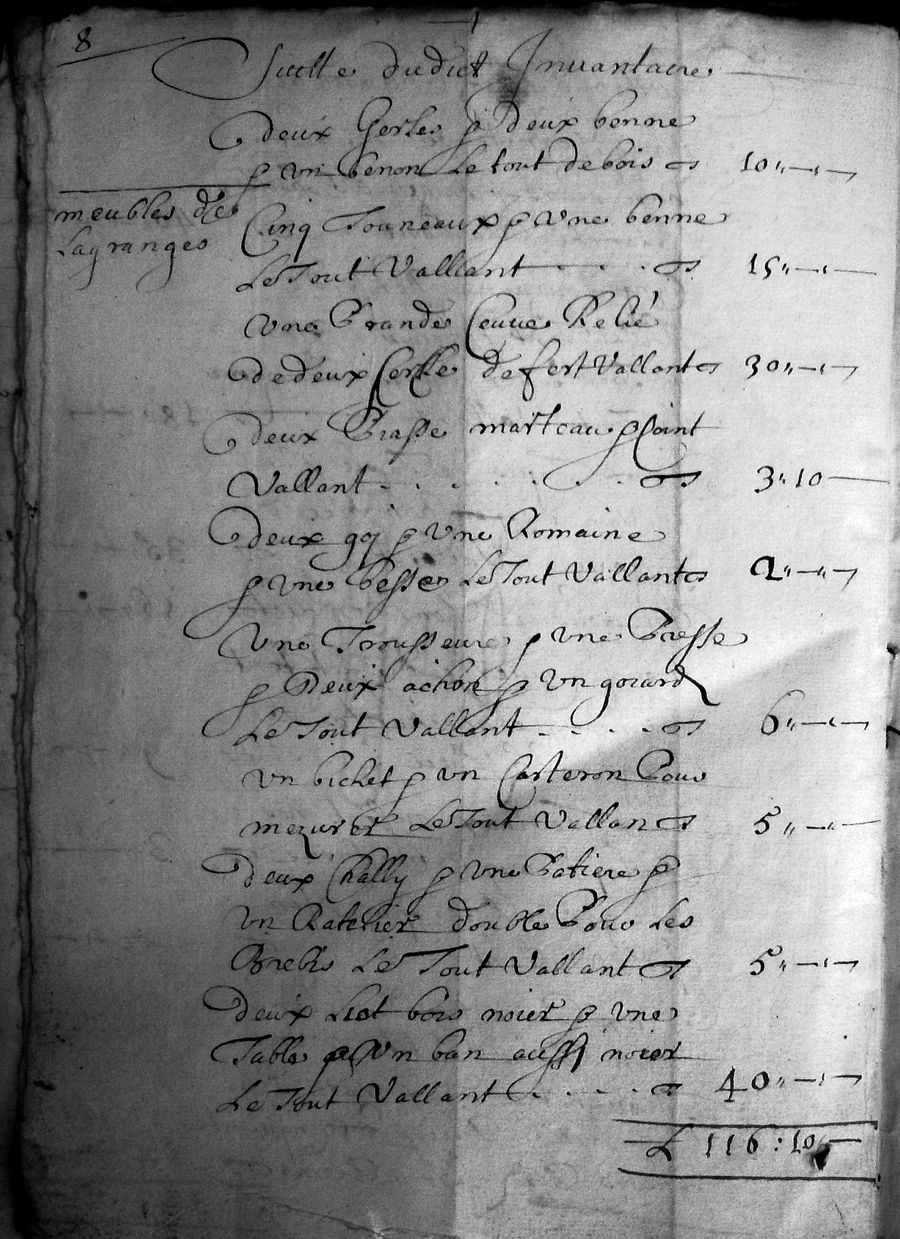 8
Suitte dudict Invantaire
deux Gerles & deux benne
& un benon le tout de bois 10"—"—
meubles de
Lagranges
Cinq Touneaux & vne benne
Le Tout Vallient 15"—"—
vne Grande Ceuue Relié
de deux Cercle de fert Vallant 30"—"—
deux Brasse marteau & Coint
Vallant 3"10—
deux & vne Romaine
& vne besse Le Tout Vallant 2"—"—
vne Trousseure & vne Presse
& Deux achon & vn goiard
Le Tout Vallant 6"—"—
vn bichet & vn Carteron Pour
mezurer Le Tout Vallan 5"—"—
deux Chally & vne Patiere &
vn Ratelier double Pour Les
Brebis Le Tout Vallant 5"—"—
deux Liot bois noier & vne
Table & vn ban aussi noier
Le Tout Vallant 40"—"—
£ 116:10